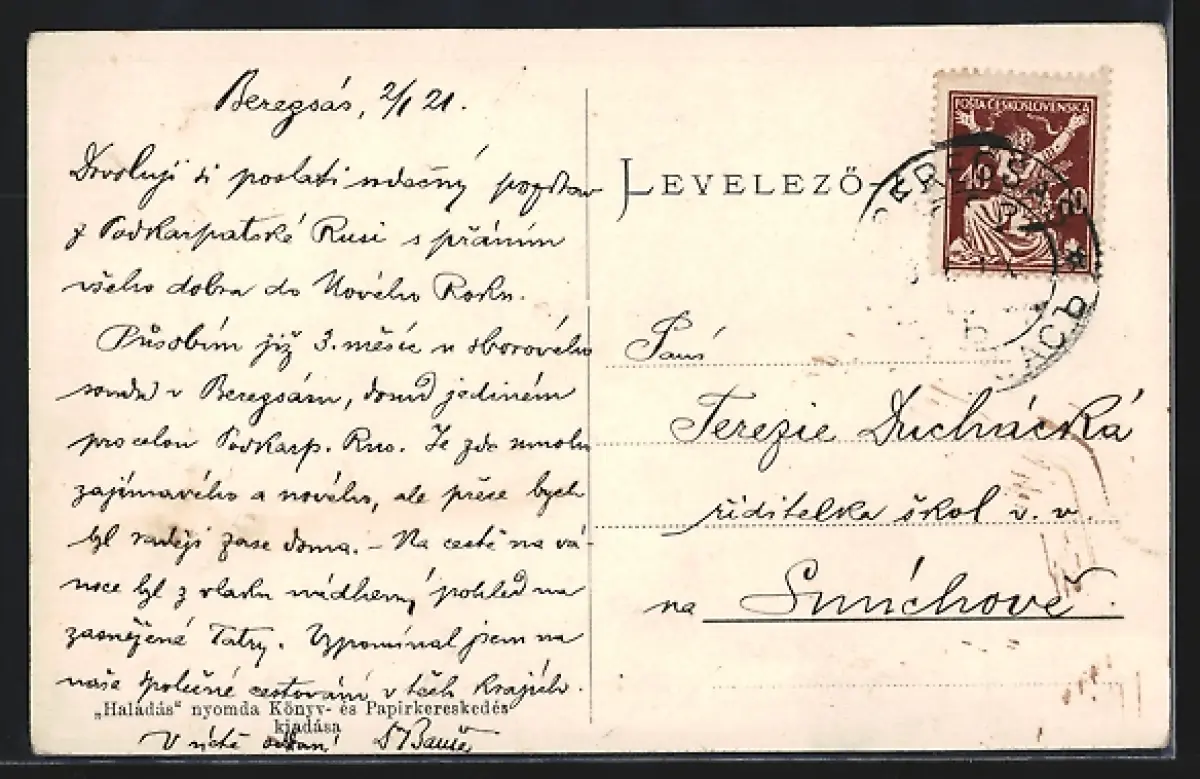 Beregsás, 2/I 21.
Dovoluji si poslati srdečný pozdrav
z Podkarpatské Rusi s přáním
všeho dobra do Nového Roku.
Působím již 3. měsíc u sborového
soudu v Beregsásu, soud jediném
pro celou Podkarp. Rus. Je zde mnoho
zajímavého a nového, ale přece bych
byl raději zase doma. – Na cestě na vá-
noce byl z vlaku nádherný pohled na
zasněžené Tatry. Vzpomínal jsem na
naše společné cestování v těch krajích.
„Haladás" nyomda Könyv- és Papirkereskedés
kiadása
V úctě oddaný
LEVELEZŐ-
POŠTA ČESKOSLOVENSKÁ
40 40
BEREGS
Paní
Terezie Ducháčká
řiditelka škol v. v.
na Smíchově.